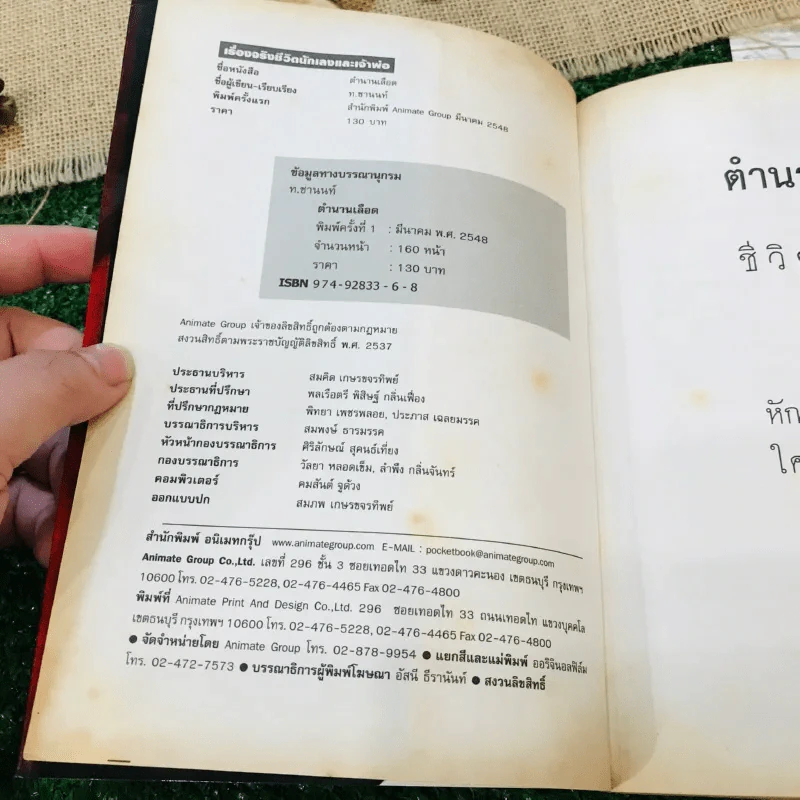 เรื่องจริงชีวิตนักเลงและเจ้าพ่อ
ชื่อหนังสือ ตำนานเลือด
ชื่อผู้เขียน-เรียบเรียง ท.ชานนท์
พิมพ์ครั้งแรก สำนักพิมพ์ Animate Group มีนาคม 2548
ราคา 130 บาท
ข้อมูลทางบรรณานุกรม
ท.ชานนท์
ตำนานเลือด
พิมพ์ครั้งที่ 1 : มีนาคม พ.ศ. 2548
จำนวนหน้า : 160 หน้า
ราคา : 130 บาท
ISBN 974-92833-6-8
Animate Group เจ้าของลิขสิทธิ์ถูกต้องตามกฎหมาย
สงวนสิทธิ์ตามพระราชบัญญัติลิขสิทธิ์ พ.ศ. 2537
ประธานบริหาร สมคิด เกษรขจรทิพย์
ประธานที่ปรึกษา พลเรือตรี พิสิษฐ์ กลิ่นเฟื่อง
ที่ปรึกษากฎหมาย พิทยา เพชรพลอย, ประภาส เฉลยมรรค
บรรณาธิการบริหาร สมพงษ์ ธารมรรค
หัวหน้ากองบรรณาธิการ ศิริลักษณ์ สุคนธ์เที่ยง
กองบรรณาธิการ วัลยา หลอดเข็ม, ลำพึง กลิ่นจันทร์
คอมพิวเตอร์ คมสันต์ จูด้วง
ออกแบบปก สมภพ เกษรขจรทิพย์
สำนักพิมพ์ อนิเมทกรุ๊ป www.animategroup.com E-MAIL : pocketbook@animategroup.com
Animate Group Co.,Ltd. เลขที่ 296 ชั้น 3 ซอยเทอดไท 33 แขวงดาวคะนอง เขตธนบุรี กรุงเทพฯ
10600 โทร. 02-476-5228, 02-476-4465 Fax 02-476-4800
พิมพ์ที่ Animate Print And Design Co.,Ltd. 296 ซอยเทอดไท 33 ถนนเทอดไท แขวงบุคคโล
เขตธนบุรี กรุงเทพฯ 10600 โทร. 02-476-5228, 02-476-4465 Fax 02-476-4800
● จัดจำหน่ายโดย Animate Group โทร. 02-878-9954 ● แยกสีและแม่พิมพ์ ออริจินอลฟิล์ม
โทร. 02-472-7573 ● บรรณาธิการผู้พิมพ์โฆษณา อัสนี ธีรานันท์ ● สงวนลิขสิทธิ์
ตำน
ชีวิ
หัก
ใค